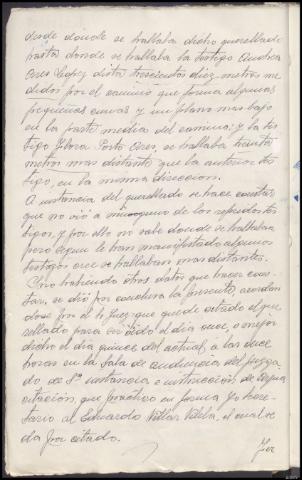 desde donde se hallaba dicho querellado
hasta donde se hallaba la testigo
Peres Lopez dista trescientos diez metros me
didos por el camino que forma algunas
pequeñas curvas y un plano mas bajo
en la parte media del camino; y la tes
tigo Flora Peres, se hallaba treinta
metros mas distante que la anterior tes
tigo, en la misma direccion.
A instancia del querellado se hace constar
que no vió a ninguno de los referidos tes
tigos, y por ello no sabe donde se hallaban
pero segun le han manifestado algunos
testigos cree se hallaban mas distantes.
No habiendo otros datos que hacer cons
tar, se dió por concluida la presente, acordan
dose por el Sr. Juez que quede citado el que
rellado para ser oido el dia once, o mejor
dicho el dia quince del actual, a las doce
horas en la Sala de audiencia del juzga
do de 1ª instancia e instrucción de
citación, que practico en forma yo Secre
tario al Eduardo Villar Vilela, el cual se
da por citado.